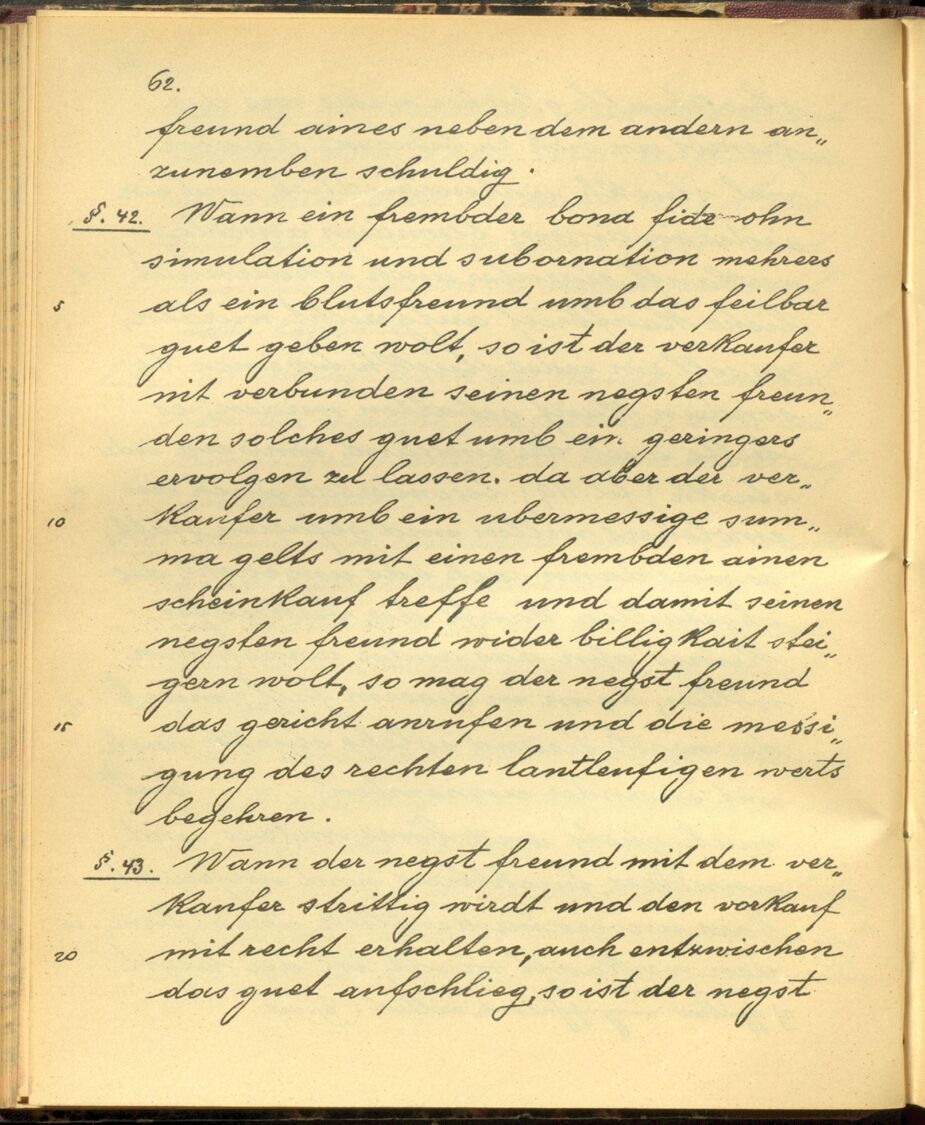 62.
freund aines neben dem andern an„
zunemben schuldig.
§. 42. Wann ein frembder bona fide ohn
simulation und subornation mehrers
5 als ein blutsfreund umb das feilbar
guet geben wolt, so ist der verkaufer
nit verbunden seinen negsten freun„
den solches guet umb ein geringers
ervolgen zu lassen. da aber der ver„
10 kaufer umb ein ubermessige sum„
ma gelts mit einen frembden ainen
scheinkauf treffe und damit seinen
negsten freund wider billigkait stei„
gern wolt, so mag der negst freund
15 das gericht anrufen und die messi„
gung des rechten lantleufigen werts
begehren.
§. 43. Wann der negst freund mit dem ver„
kaufer strittig wirdt und den vorkauf
20 mit recht erhalten, auch entzwischen
das guet aufschlieg, so ist der negst